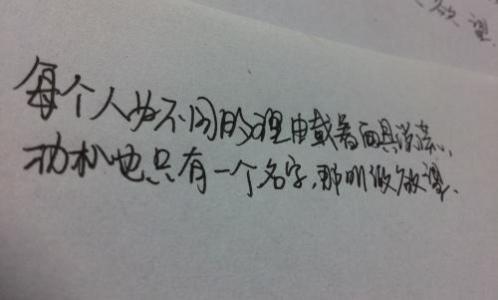 望
每个人为不同的理由戴着面具说谎,
动机也只有一个名字,那叫做欲望.